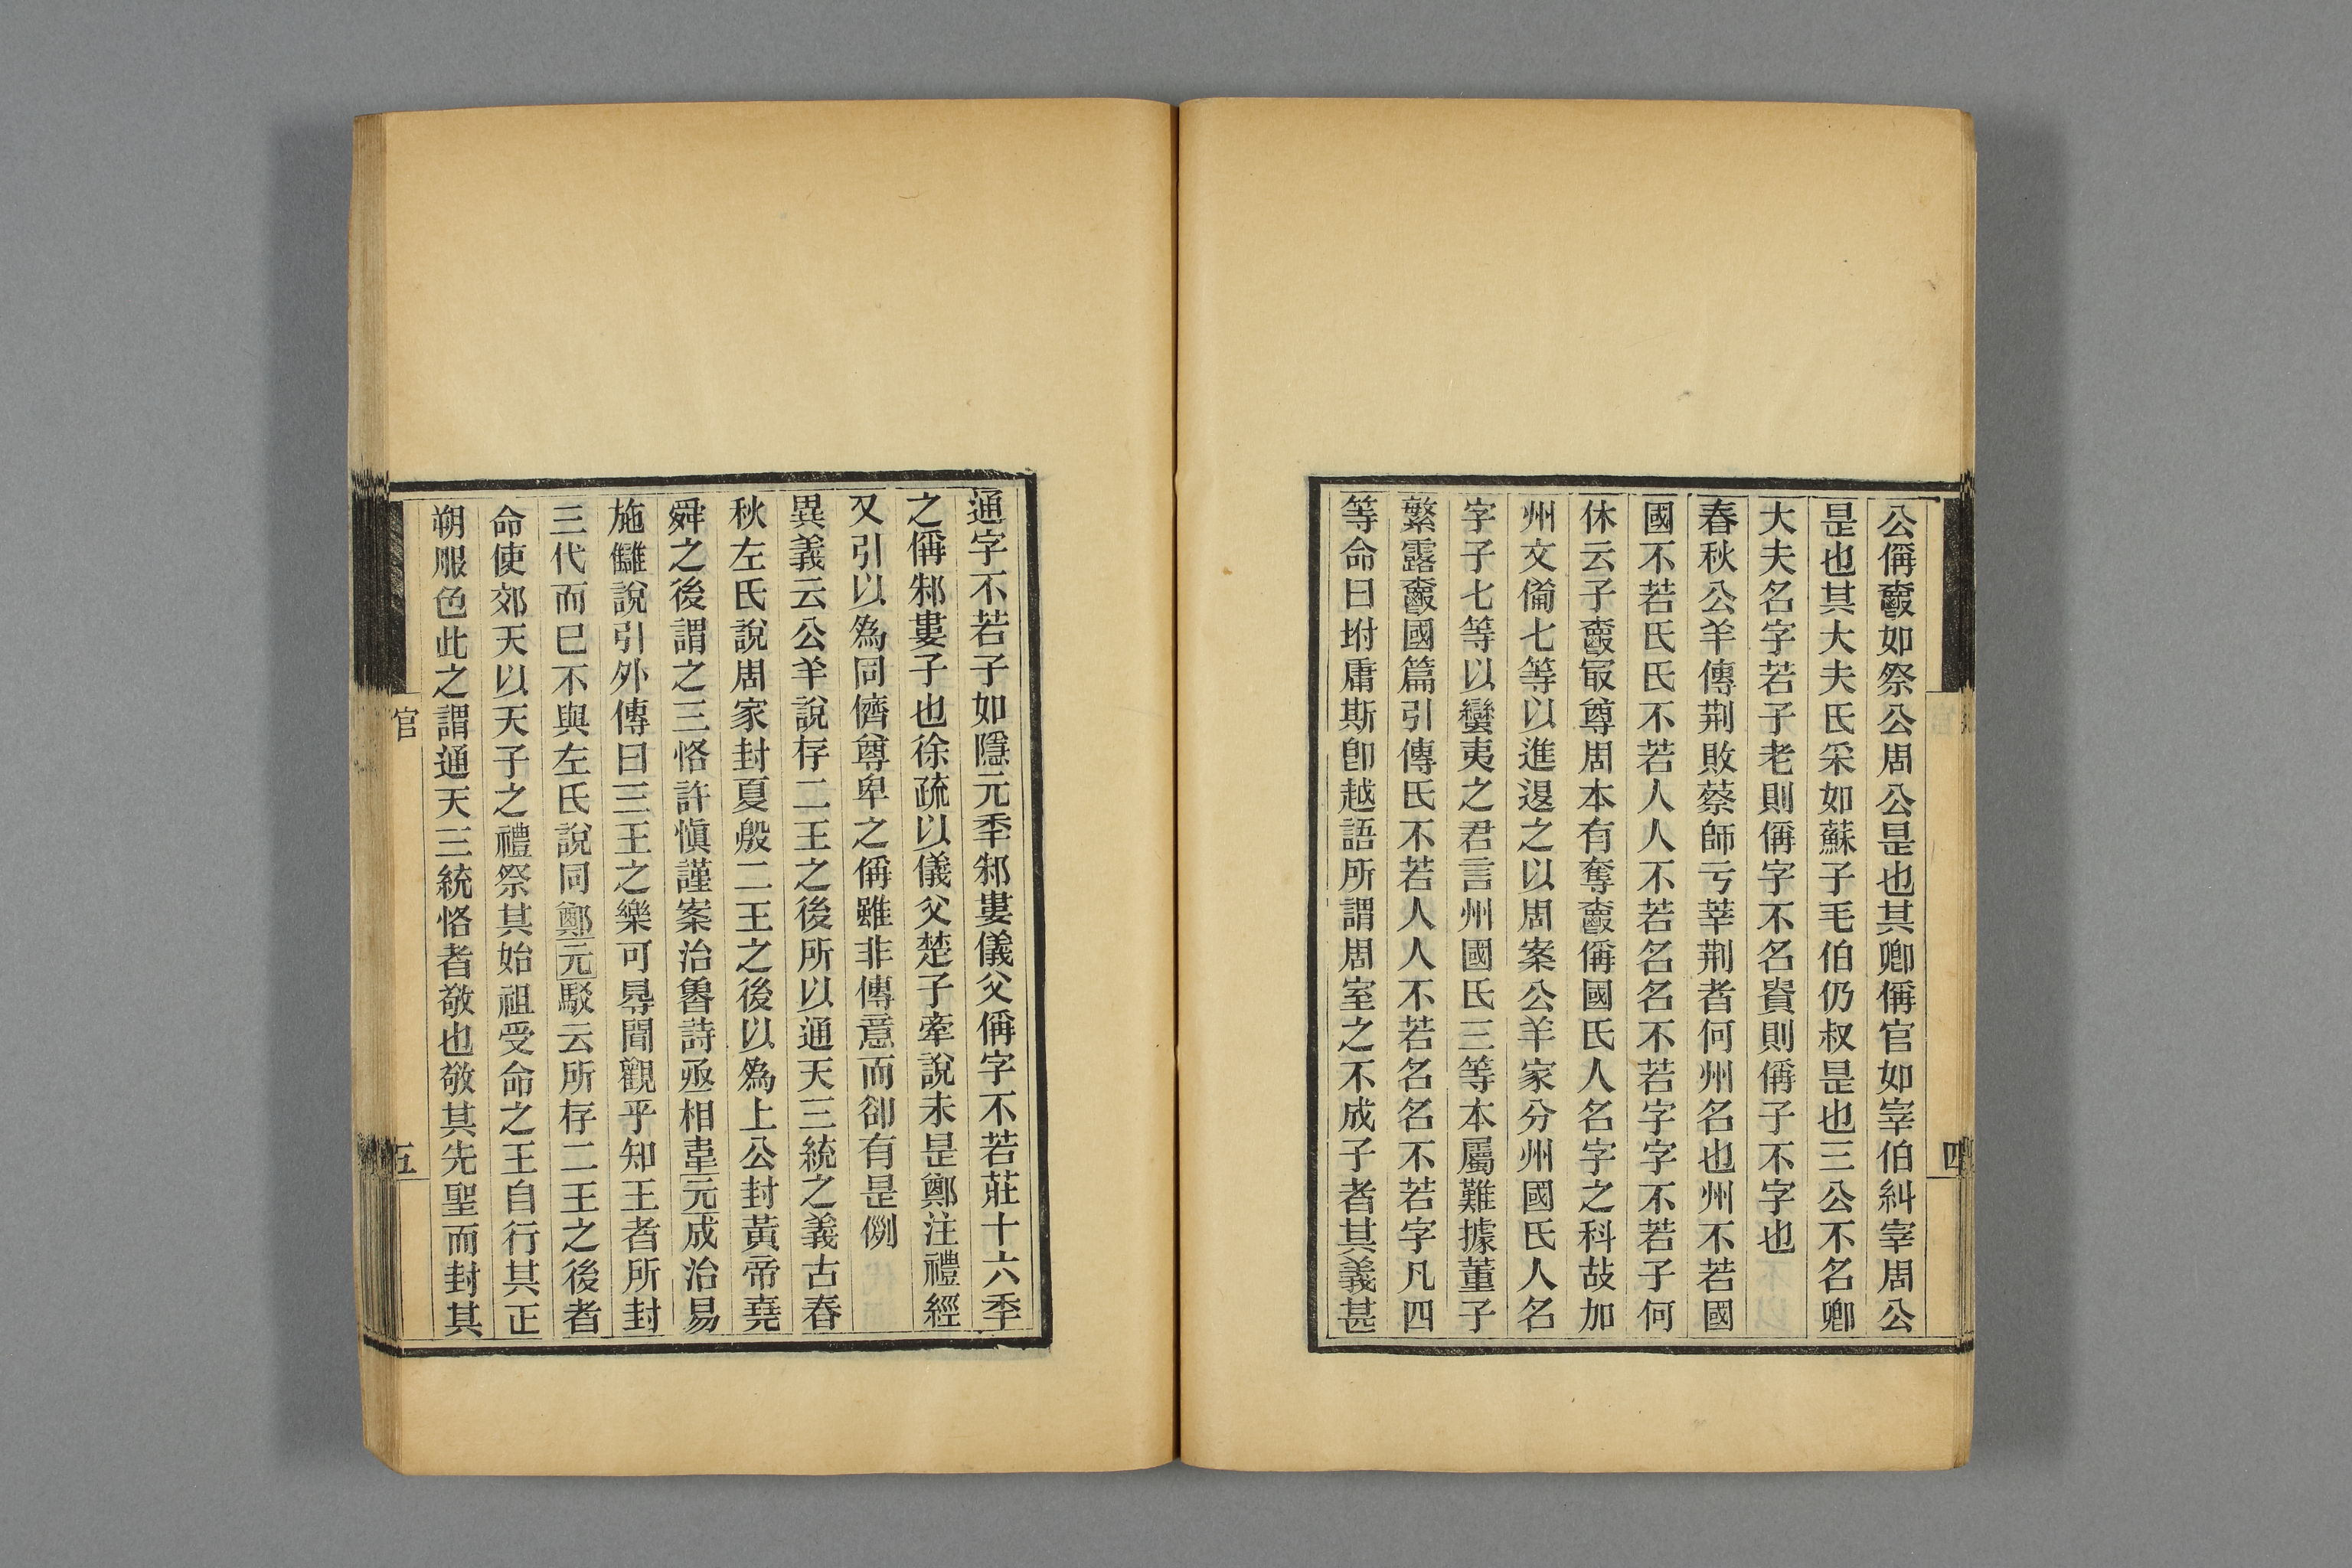 公偁𤔲如祭公周公是也其卿偁官如宰伯糾宰周公
是也其大夫氏采如蘇子毛伯仍叔是也三公不名卿
大夫名字若子老則偁字不名貴則偁子不字也
春秋公羊傳荆敗蔡師亏莘荆者何州名也州不若國
國不若氏氏不若人人不若名名不若字字不若子何
休云子㝡尊周本有奪偁國氏人名字之科故加
州文僃七等以進退之以周案公羊家分州國氏人名
字子七等以蠻夷之君言州國氏三等本屬難據董子
繁露國篇引傳氏不若人人不若名名不若字凡四
等命曰坿庸斯卽越語所謂周室之不成子者其義甚
四
通字不若子如隱元秊邾婁儀父偁字不若莊十六秊
之偁邾婁子也徐疏以儀父楚子牽說未是鄭注禮經
又引以爲同儕尊卑之偁雖非傳意而卻有是例
異義云公羊說存二王之後所以通天三統之義古春
秋左氏說周家封夏殷二王之後以爲上公封黃帝堯
舜之後謂之三恪許愼謹案治魯詩丞相韋元成治易
施讎說引外傳曰三王之樂可㝵聞觀乎知王者所封
三代而巳不與左氏說同鄭元駁云所存二王之後者
命使郊天以天子之禮祭其始祖受命之王自行其正
朔服色此之謂通天三統恪者敬也敬其先聖而封其
官
五